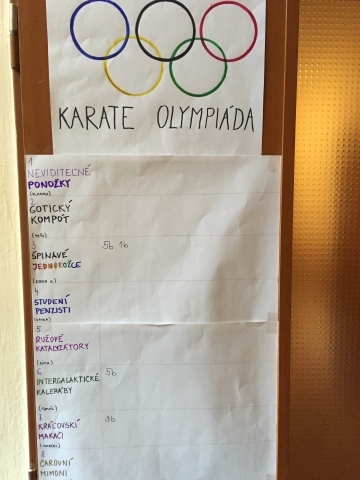 KARATE OLYMPIÁDA
1
NEVIDITEĽNÉ
PONOŽKY
2
GOTICKÝ
KOMPÓT
3
ŠPINAVÉ 5b 1b
JEDNOROŽCE
4
STUDENÍ
PENZISTI
5
RUŽOVÉ
KATALYZÁTORY
6
INTERGALAKTICKÉ 5b
KALERÁBY
7
KRÁĽOVSKÍ 3b
MAKAČI
8
ČAROVNÍ
MIMONI